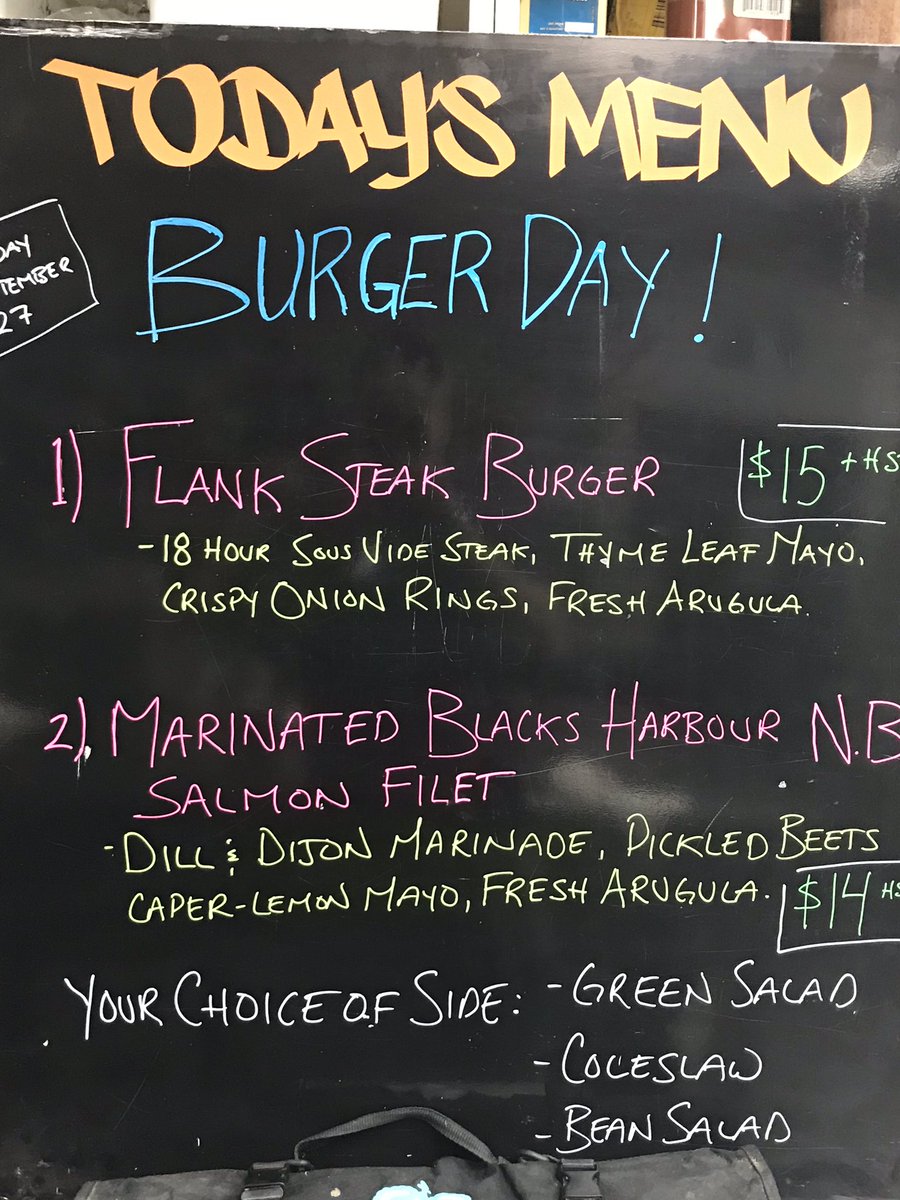 TODAY'S MENU
BURGER DAY!
DAY
TEMBER
27
1) FLANK STEAK BURGER $15 + HS
- 18 HOUR SOUS VIDE STEAK, THYME LEAF MAYO,
CRISPY ONION RINGS, FRESH ARUGULA.
2) MARINATED BLACKS HARBOUR N.B
SALMON FILET
- DILL & DIJON MARINADE, PICKLED BEETS
CAPER-LEMON MAYO, FRESH ARUGULA. $14 HS
YOUR CHOICE OF SIDE: - GREEN SALAD
- COLESLAW
- BEAN SALAD